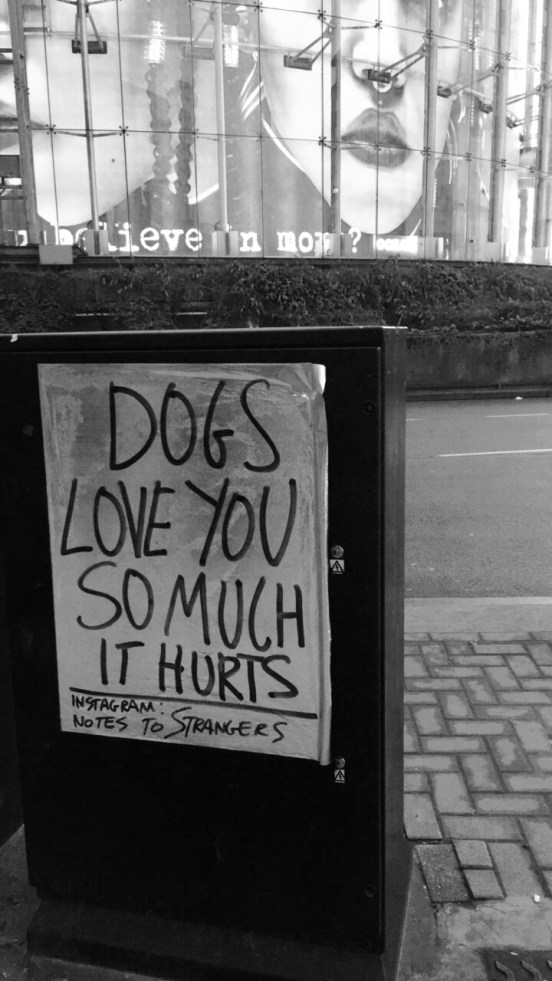 believe in more?
DOGS
LOVE YOU
SO MUCH
IT HURTS
INSTAGRAM:
NOTES TO STRANGERS